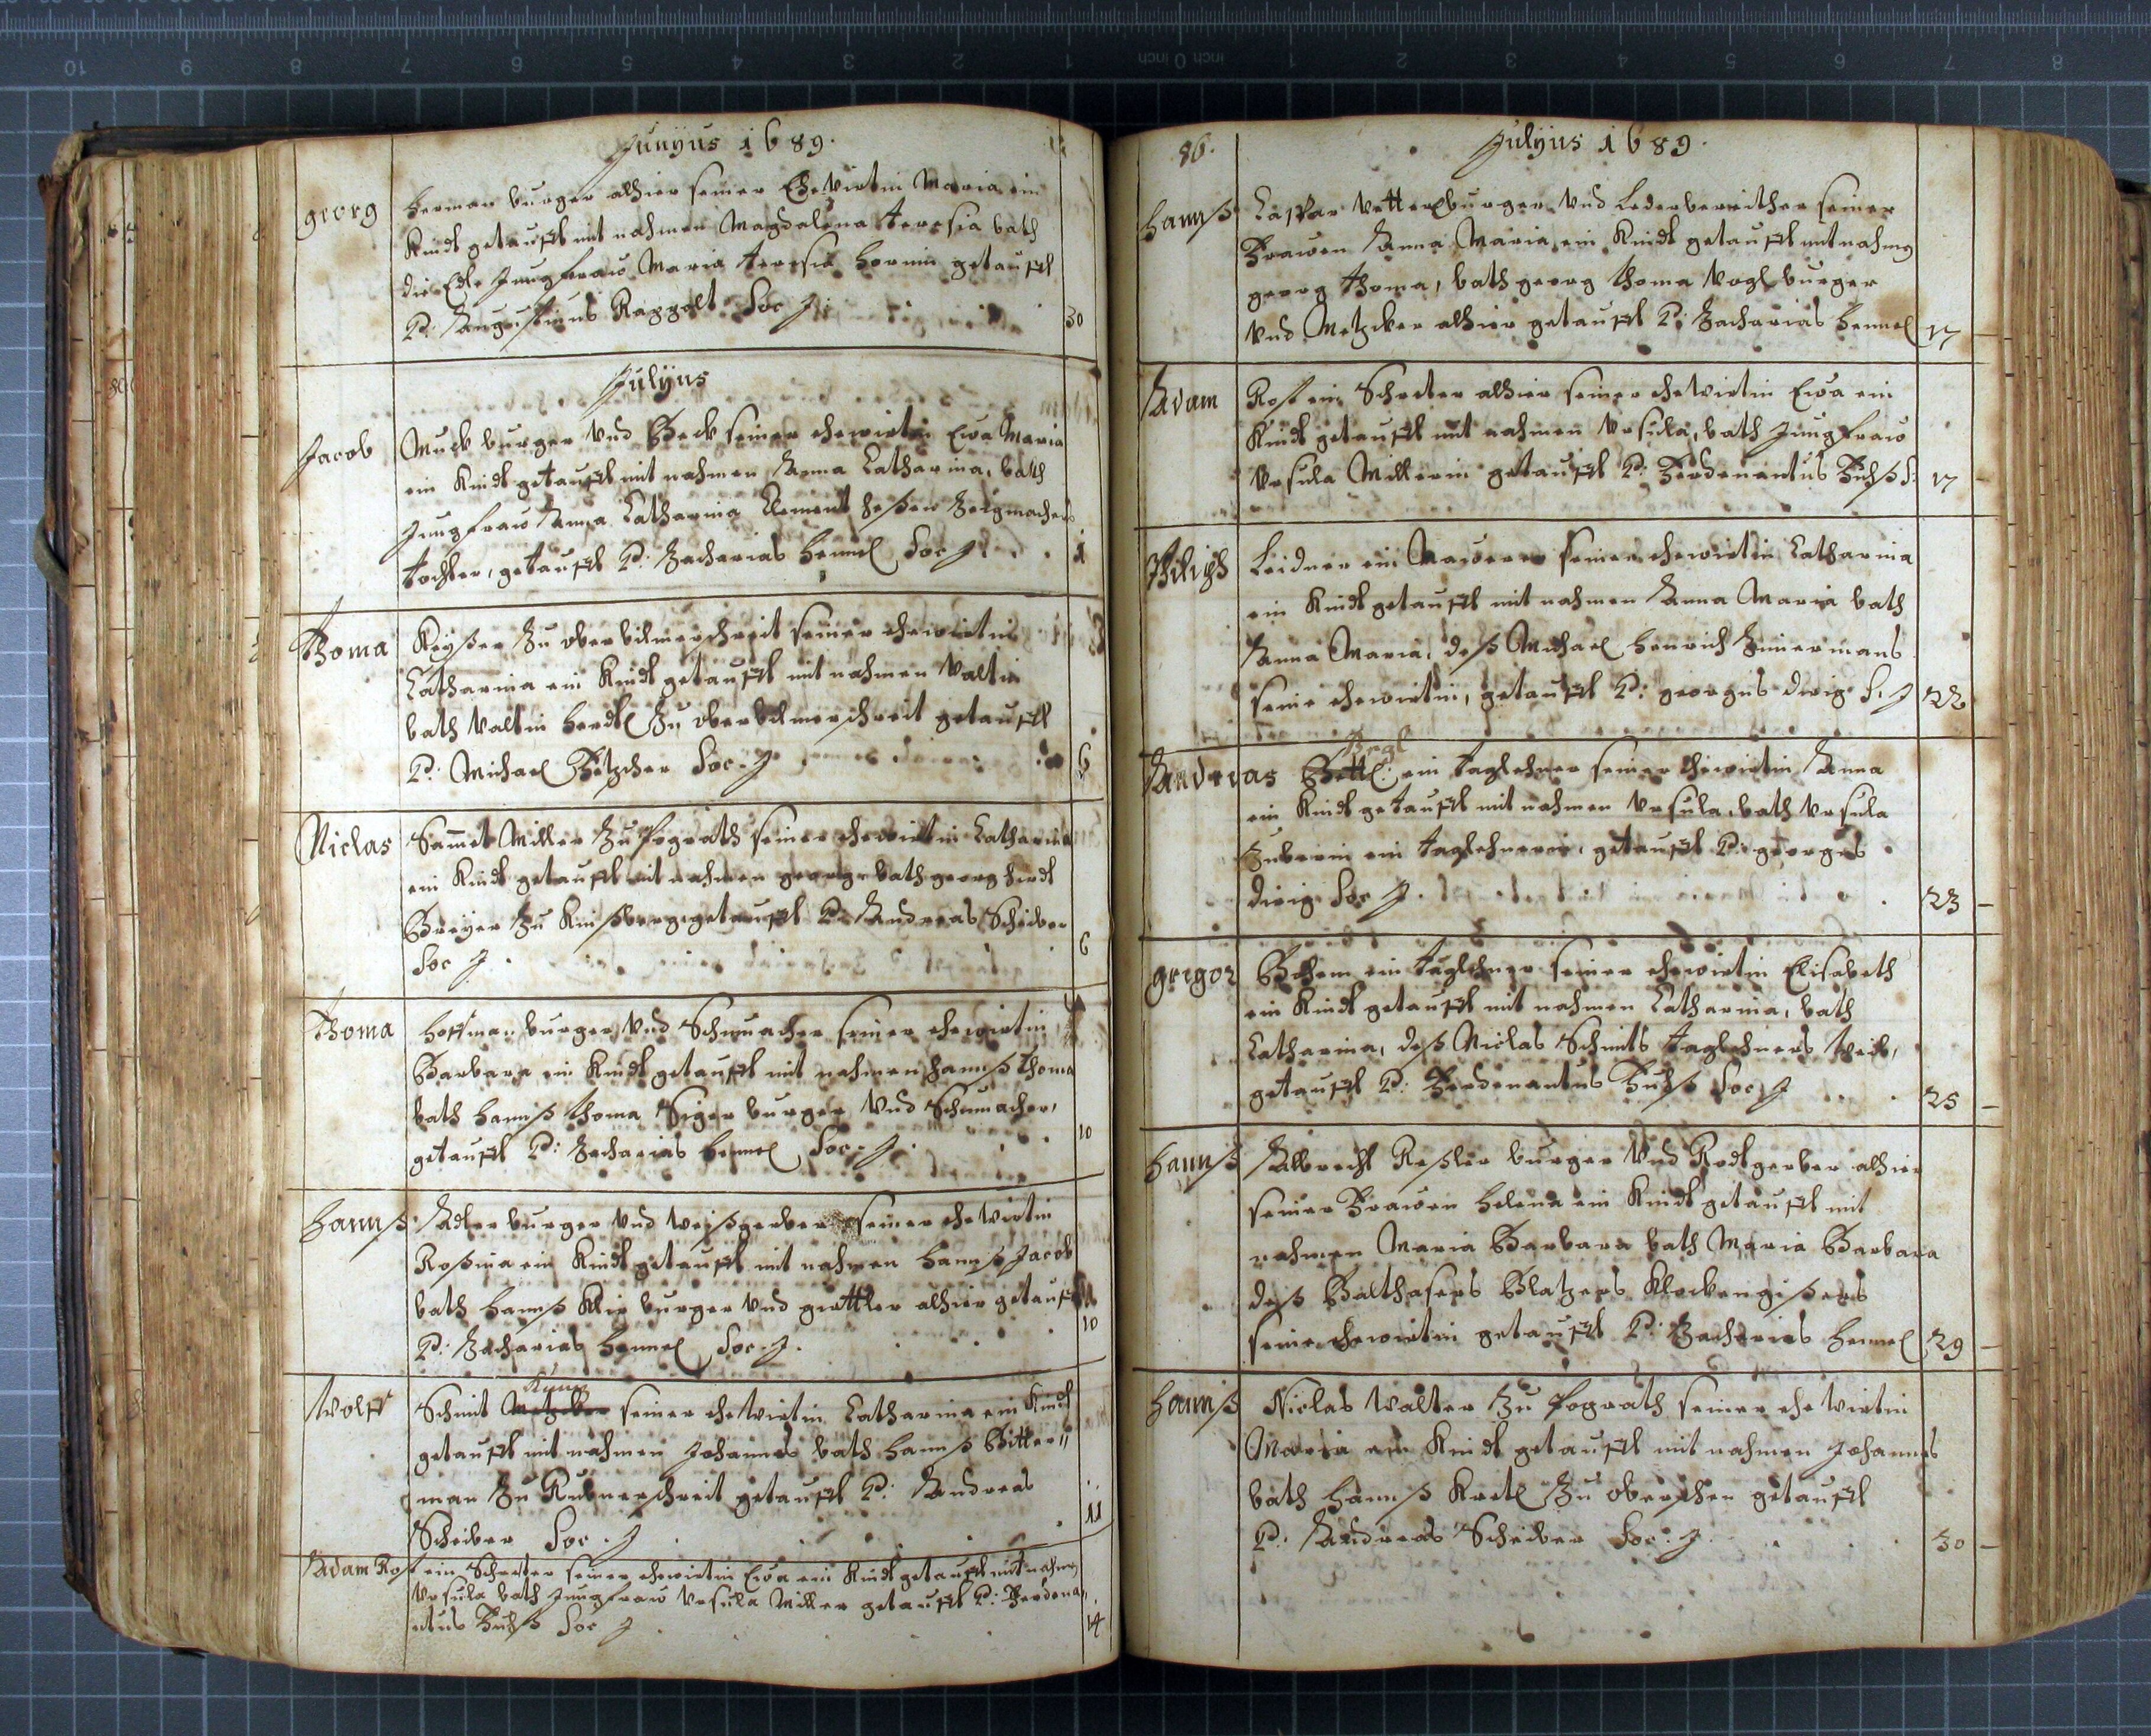 Junyus 1689.
georg herman burger alhier seiner Ehewirtin Maria ein
Kindt getaufft mit nahmen Magdalena Teresia bath
die Edle Jungfraw Maria Teresia getaufft
P: Augustinus Raggolt Soc J: 30
Julyus
Jacob Muck burger Vnd Beck seiner ehewirtin Eva Maria
ein Kindt getaufft mit nahmen Anna Catharina, bath
Jungfraw Anna Catharina Element Zeigmachers
tochter, getaufft P: Zacharias hennel Soc J. 1
Thoma Keyser Zu seiner ehewirtin
Catharina ein Kindt getaufft mit nahmen Valtin
bath Valtin Zu getaufft
P: Michael Soc. J 6
Niclas Sam̄et Miller Zu Pograth seiner ehewirtin Catharina
ein Kindt getaufft mit nahmen georg bath georg
Breyer Zu getaufft P: Andreas Scheiber
Soc J. 6
Thoma hoffman burger Vnd Schumacher seiner ehewirtin
Barbara ein Kindt getaufft mit nahmen hannß Thoma
bath hannß thoma Siger burger Vnd Schumacher,
getaufft P: Zacharias hennel Soc. J. 10
hannß Adler burger Vnd weißgerber seiner ehewirtin
Roßina ein Kindt getaufft mit nahmen hannß Jacob
bath hannß burger Vnd alhier getaufft
P: Zacharias hennel Soc. J. 10
Wolff Schmit seiner ehewirtin Catharina ein Kindt
getaufft mit nahmen Johannes bath hannß Bitter//
man Zu getaufft P: Andreas
Scheiber Soc. J 11
Adam Rost ein seiner ehewirtin Eva ein Kindt getaufft mit nahmen
Vrsula bath Jungfraw Vrsula Miller getaufft P: Ferdena,
ntus Soc J 14
86. Julyus 1689.
hannß Caspar Vetterl burger Vnd Lederbereither seiner
Frawen Anna Maria ein Kindt getaufft mit nahmen
georg thoma, bath georg thoma Vogl burger
Vnd Metzcker alhier getaufft P: Zacharias hennel 17
Adam Rost ein alhier seiner ehewirtin Eva ein
Kindt getaufft mit nahmen Vrsula, bath Jungfraw
Vrsula Millerin getaufft P: Ferdenantus S: 17
Philiph Leidner ein Maurer seiner ehewirtin Catharina
ein Kindt getaufft mit nahmen Anna Maria bath
Anna Maria, deß Michael henrich Zimermans
seine ehewirtin, getaufft P: georgus S. J 22
Andreas ein taglehner seiner ehewirtin Anna
ein Kindt getaufft mit nahmen Vrsula, bath Vrsula
Huberin ein taglehnerin, getaufft P: georgus
Soc J. 23
gregor Böhem ein taglehner seiner ehewirtin Elisabeth
ein Kindt getaufft mit nahmen Catharina, bath
Catharina, deß Niclas Schmits taglehners Weib,
getaufft P: Ferdenantus Soc J 25
hannß Albrecht Keßler burger Vnd Rodtgerber alhier
seiner Frawen Helena ein Kindt getaufft mit
nahmen Maria Barbara bath Maria Barbara
deß Balthasers Platzers Klockengißers
seine ehewirtin getaufft P: Zacharias hennel 29
hannß Niclas Walter Zu Pograth seiner ehewirtin
Maria ein Kindt getaufft mit nahmen Johannes
bath hannß Zu getaufft
P. Andreas Scheiber Soc: J. 30